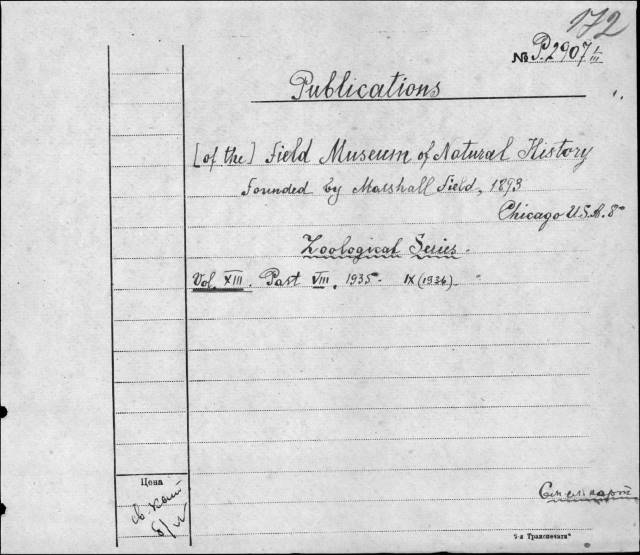 172
№ P.2907 I/III
Publications
[of the] Field Museum of Natural History
Founded by Marshall Field, 1893
Chicago U.S.A. 8°
Zoological Series.
Vol XIII. Part VIII. 1935 - IX (1936).
Цена
б/ц
См. сл. карт.
7-я Транспечать"